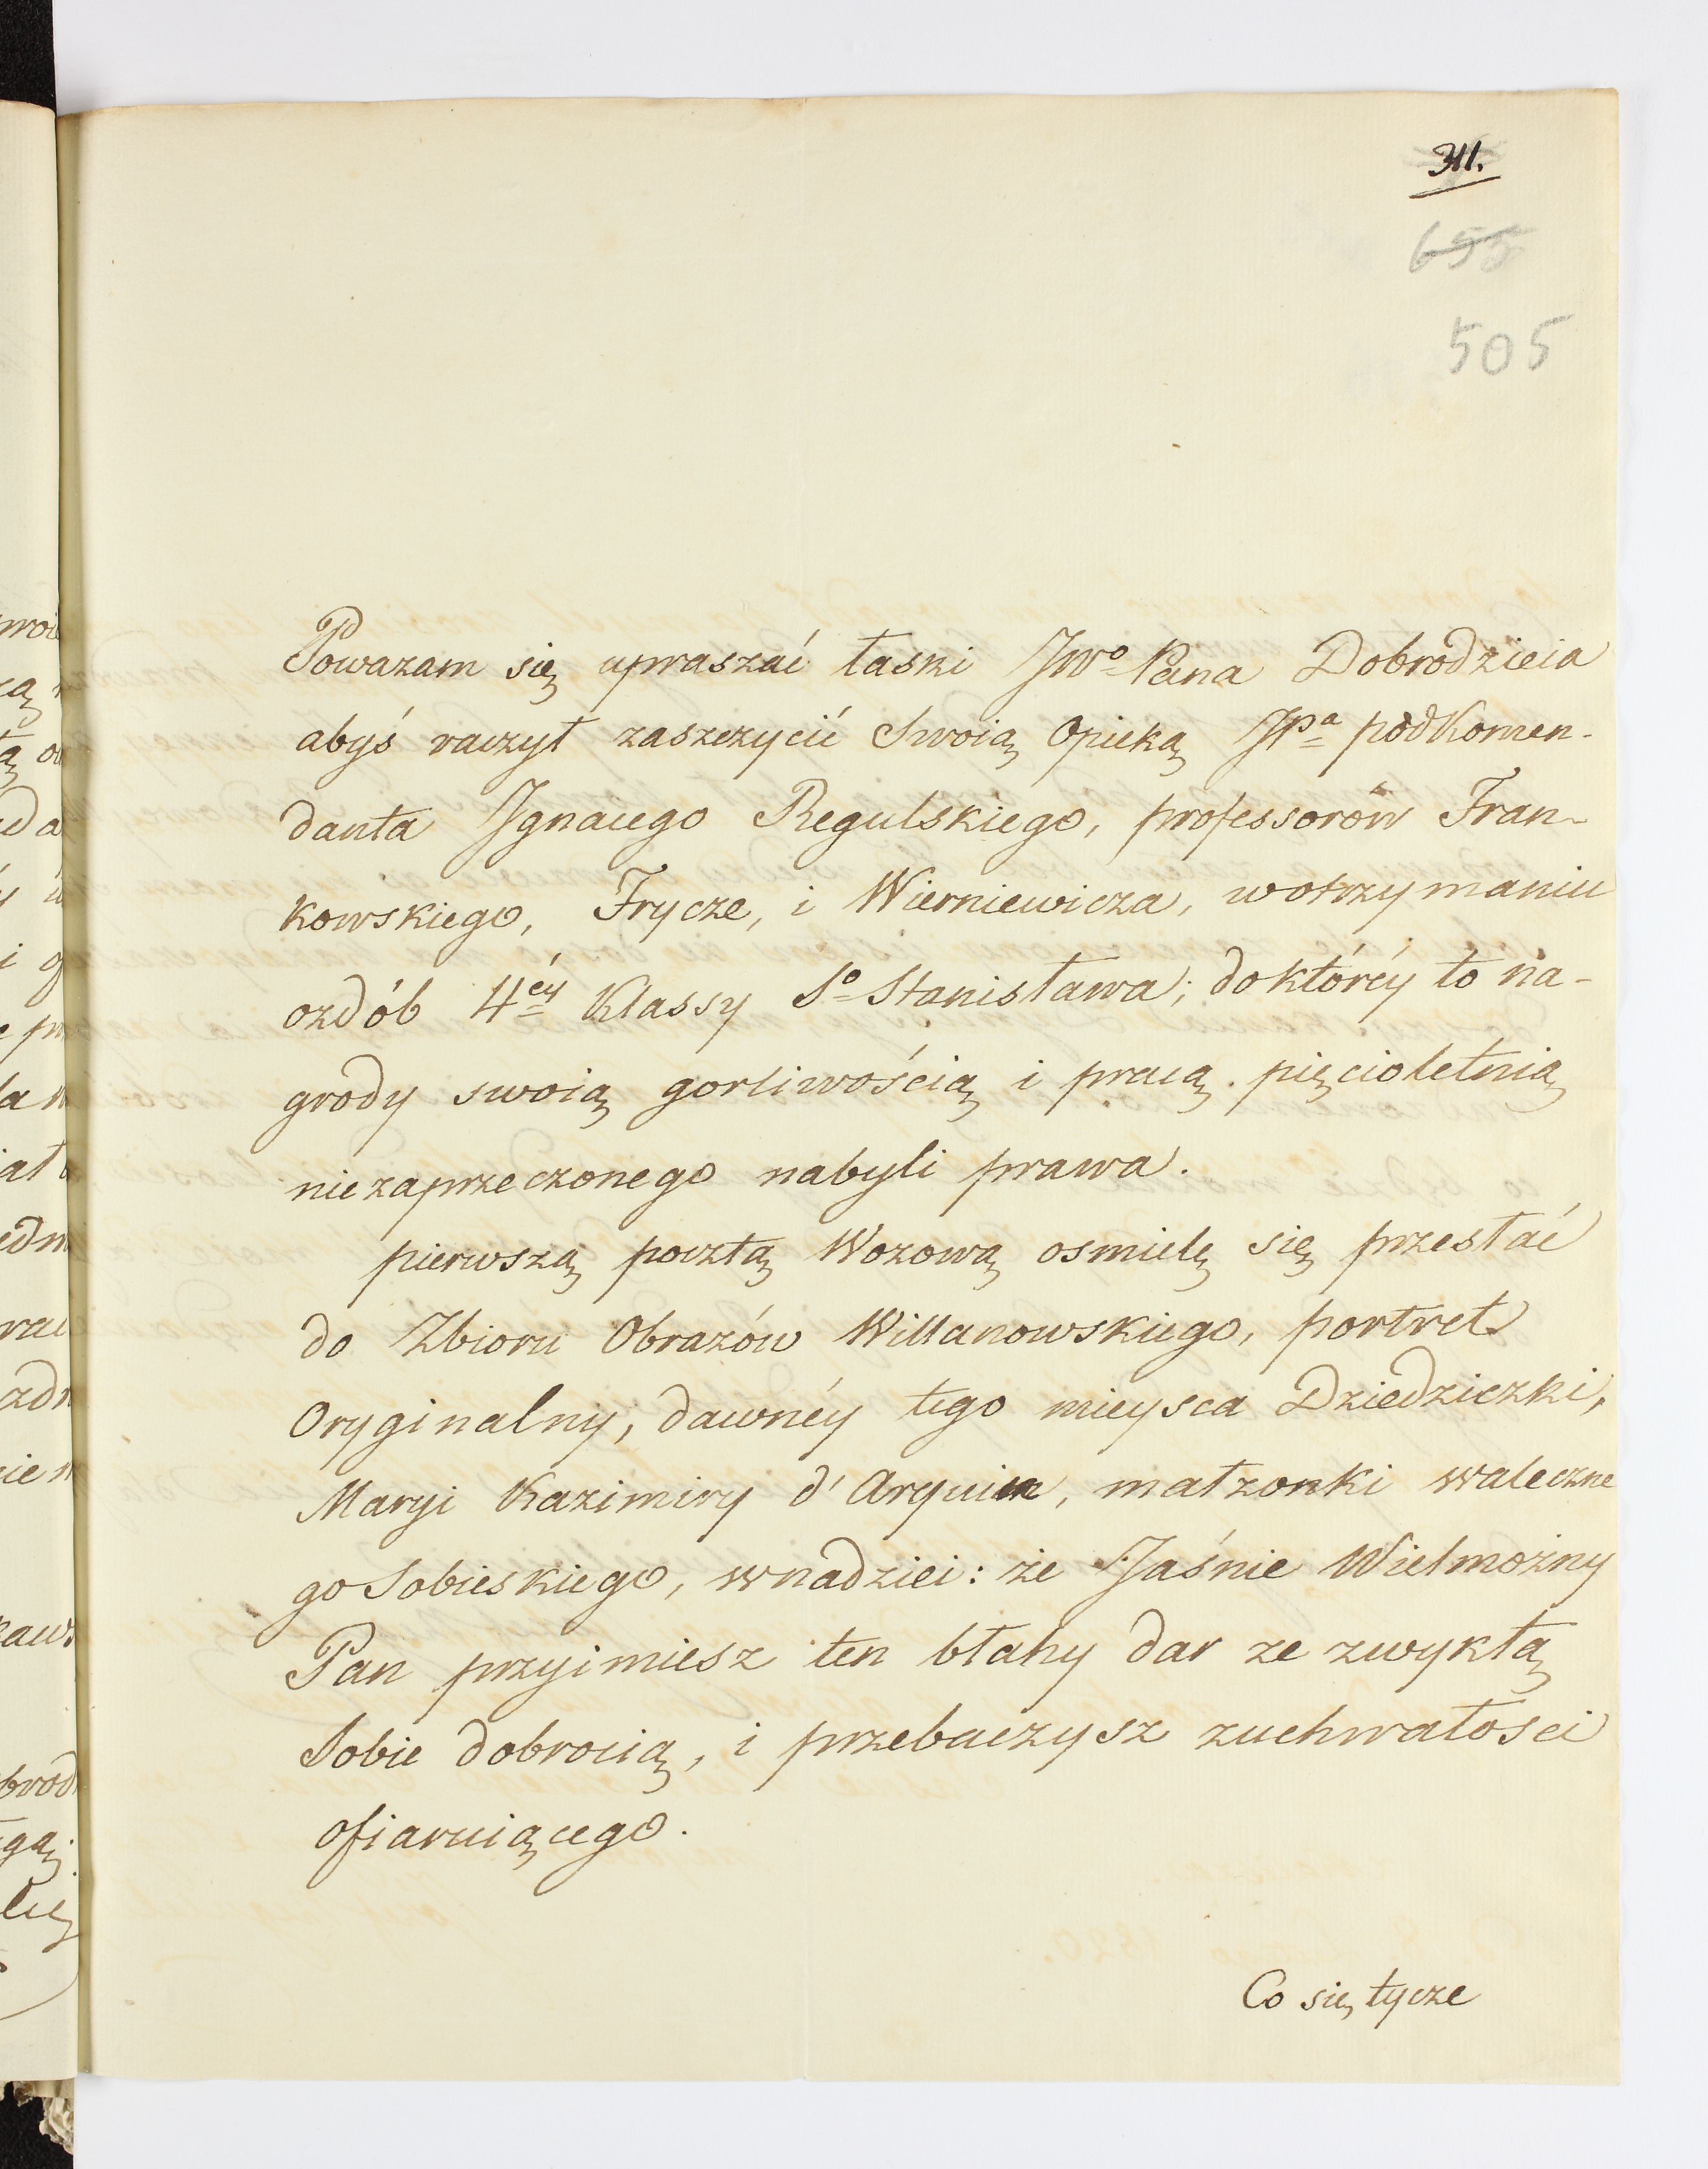 311.
655
505
Poważam się upraszać łaski JWo Pana Dobrodzieia
abyś raczył zaszczycić Swoią Opieką JPa podkomen-
danta Ignacego Regulskiego, professorów Fran-
kowskiego, Frycze, i Wierniewicza, wotrzymaniu
ozdób 4éy Klassy So Stanisława; doktóréy to na-
grody swoią gorliwością i pracą pięcioletnią
niezaprzeczonego nabyli prawa.
pierwszą pocztą Wozową osmielę się przesłać
do Zbioru Obrazów Willanowskiego, portret
Oryginalny, dawnéy tego mieysca Dziedziczki,
Maryi Kazimiry d'Arquien, małzonki waleczne
go Sobieskiego, wnadziei: że Jaśnie Wielmożny
Pan przyimiesz ten błahy dar ze zwykłą
Sobie dobrocią, i przebaczysz zuchwałosci
ofiaruiącego.
Co się tycze